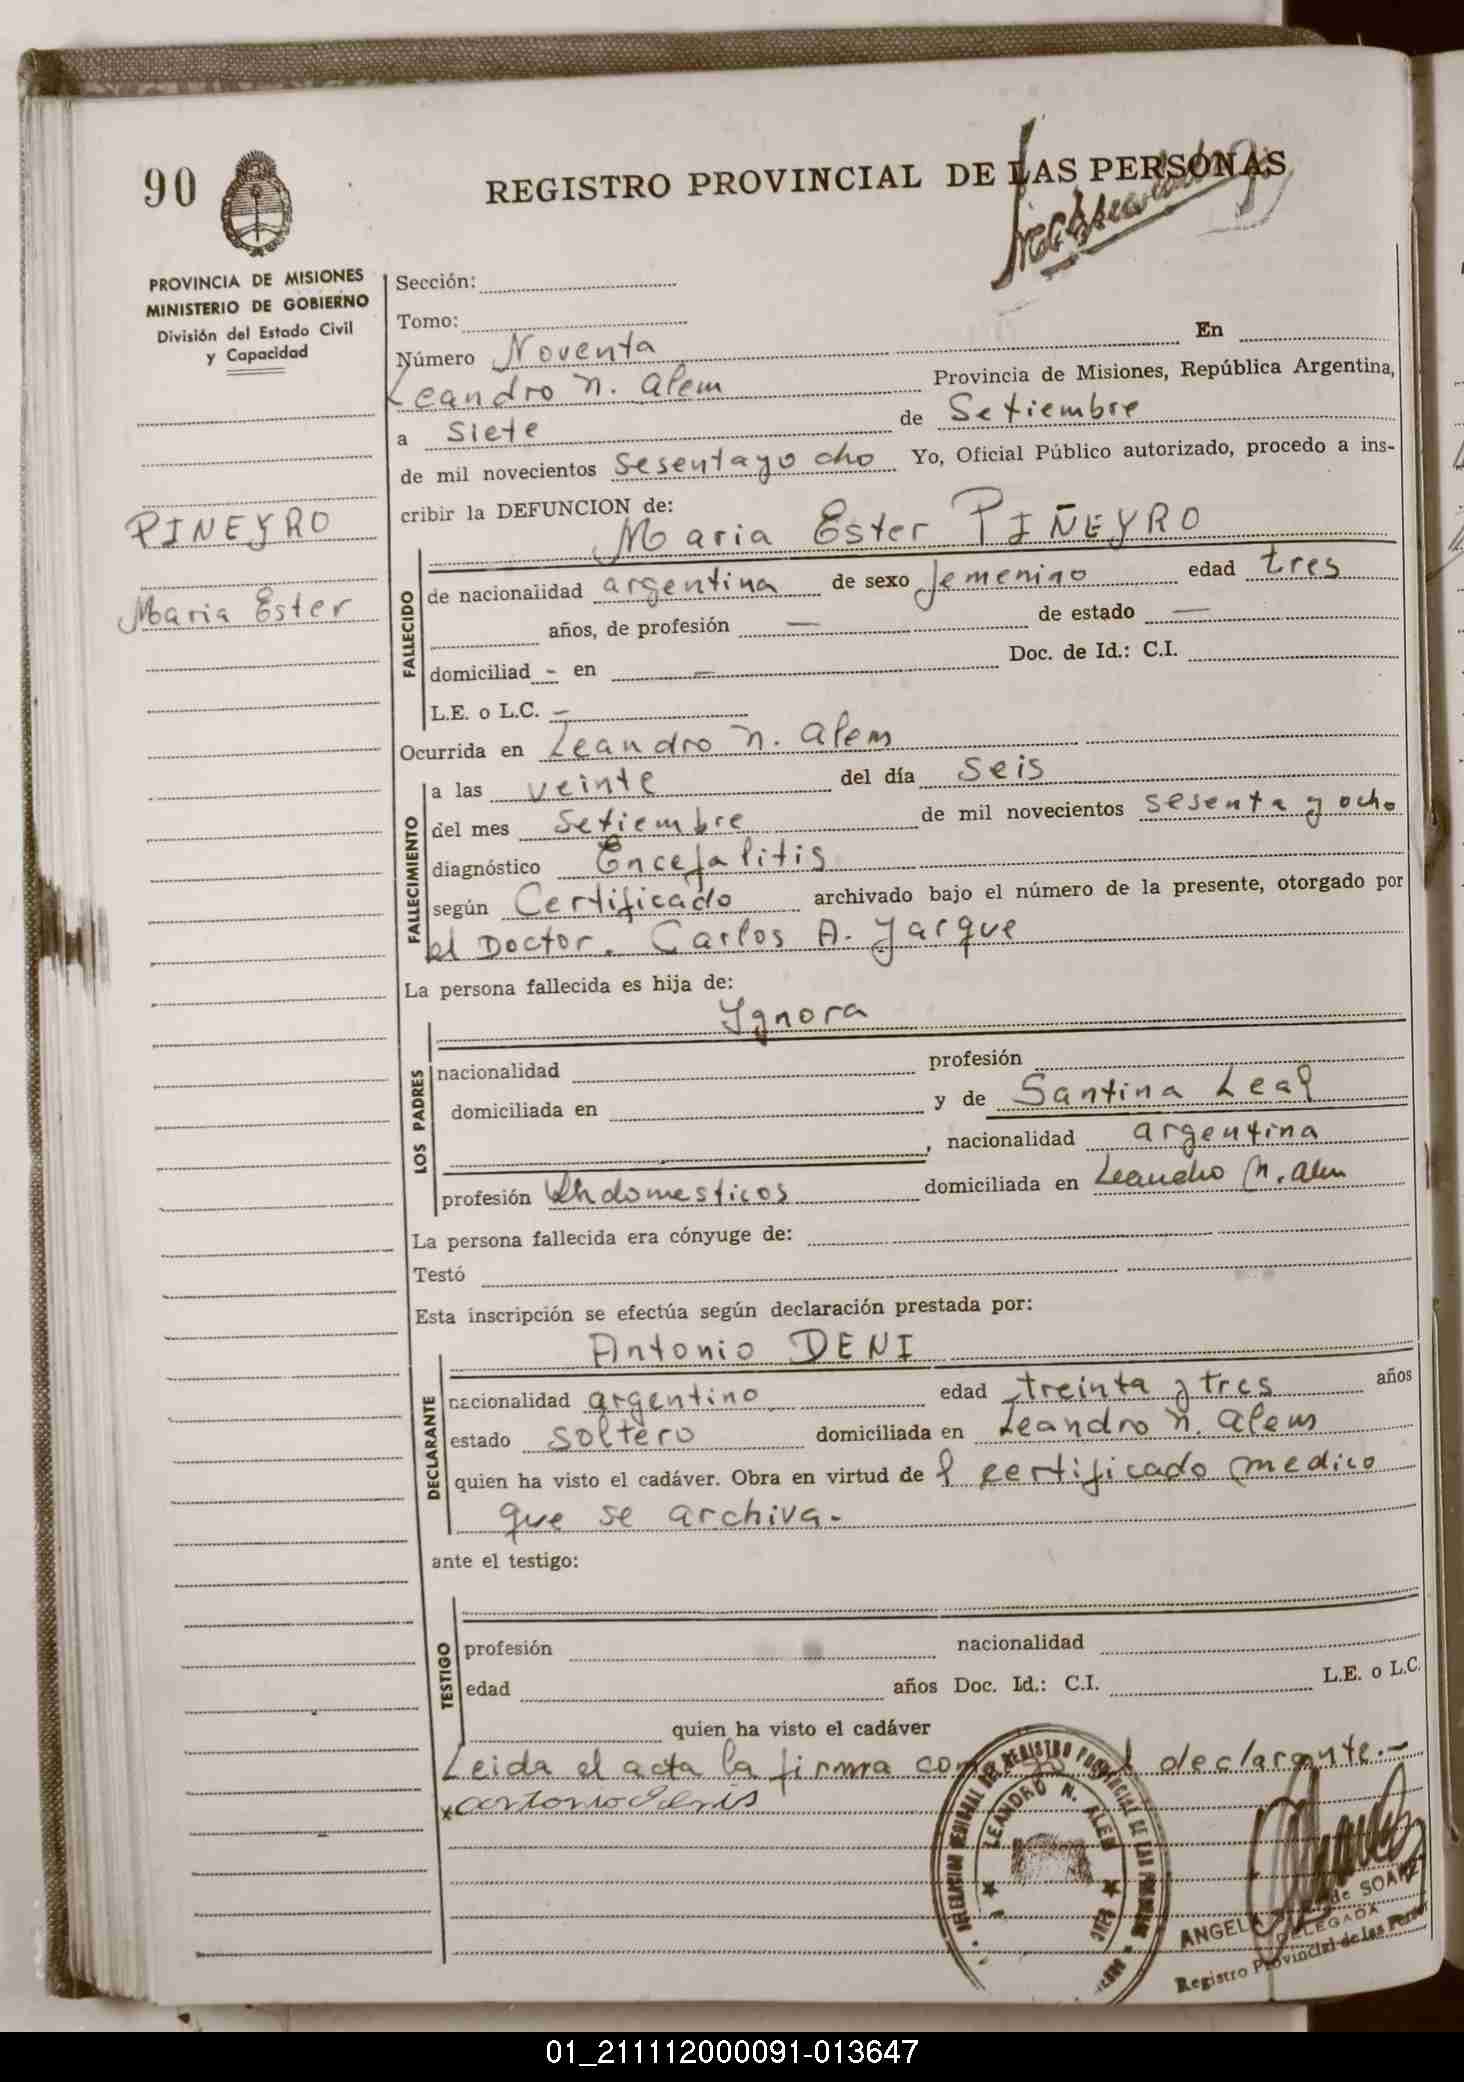 90
REGISTRO PROVINCIAL DE LAS PERSONAS
PROVINCIA DE MISIONES
MINISTERIO DE GOBIERNO
División del Estado Civil
y Capacidad
PIÑEYRO
Maria Ester
Sección:
Tomo:
Número Noventa En
Leandro N. Alem Provincia de Misiones, República Argentina,
a Siete de Setiembre
de mil novecientos Sesentayocho Yo, Oficial Público autorizado, procedo a ins-
cribir la DEFUNCION de:
Maria Ester PIÑEYRO
FALLECIDO
de nacionalidad argentina de sexo femenino edad tres
años, de profesión — de estado —
domiciliad - en — Doc. de Id.: C.I.
L.E. o L.C. —
Ocurrida en Leandro N. Alem
FALLECIMIENTO
a las veinte del día Seis
del mes Setiembre de mil novecientos sesenta y ocho
diagnóstico Encefalitis
según Certificado archivado bajo el número de la presente, otorgado por
el Doctor. Carlos A. Yarque
La persona fallecida es hija de:
Ygnora
LOS PADRES
nacionalidad profesión
domiciliada en y de Santina Leal
, nacionalidad argentina
profesión domesticos domiciliada en Leandro N. Alem
La persona fallecida era cónyuge de:
Testó
Esta inscripción se efectúa según declaración prestada por:
Antonio DENI
DECLARANTE
nacionalidad argentino edad treinta y tres años
estado Soltero domiciliada en Leandro N. Alem
quien ha visto el cadáver. Obra en virtud de l certificado medico
que se archiva.-
ante el testigo:
TESTIGO
profesión nacionalidad
edad años Doc. Id.: C.I. L.E. o L.C.
quien ha visto el cadáver
Leida el acta la firma declarante.-
DELEGACION REGIONAL DEL REGISTRO PROVINCIAL DE LAS PERSONAS
LEANDRO N. ALEM
ANGELA de SOAREZ
DELEGADA
Registro Provincial de las Personas
01_211112000091-013647